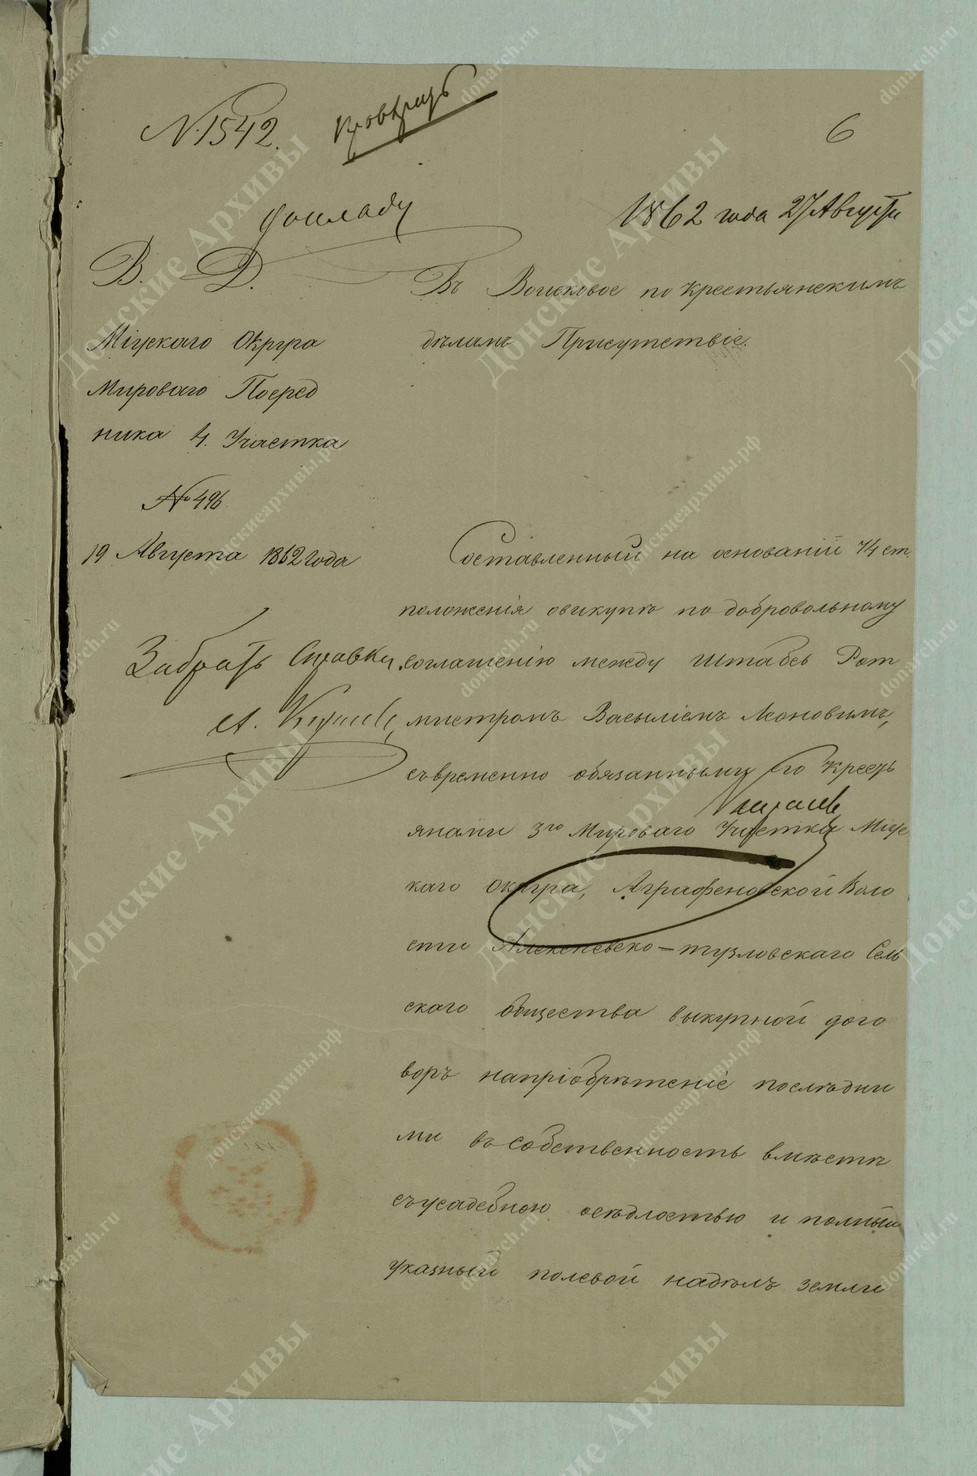 N. 1542.
6
докладу
1862 года 27 Августа
В. Д.
Міускаго Округа
Мироваго Посред
ника 4. Участка
№ 496
19 Августа 1862 года
Забрать справки
А.
Въ Воисковое по крестьянскимъ
дѣламъ Присутствіе.
Составленный на основаніи ст
положенія овыкупѣ по добровольному
соглашенію между штабсъ Рот
мистромъ Васыліемъ Леоновымъ,
съвременно обязанными его крестъ
янами 3го Мироваго Участка Міус
каго округа, Аграфеновской Воло
сти Алексѣевско-тузловскаго Сель
скаго общества выкупной дого
воръ напріобрѣтеніе послѣдни
ми въ собственность вмѣстѣ
съусадебною осѣдлостью и полный
указный полевой надѣлъ земли
Донские Архивы
donarch.ru
донскиеархивы.рф